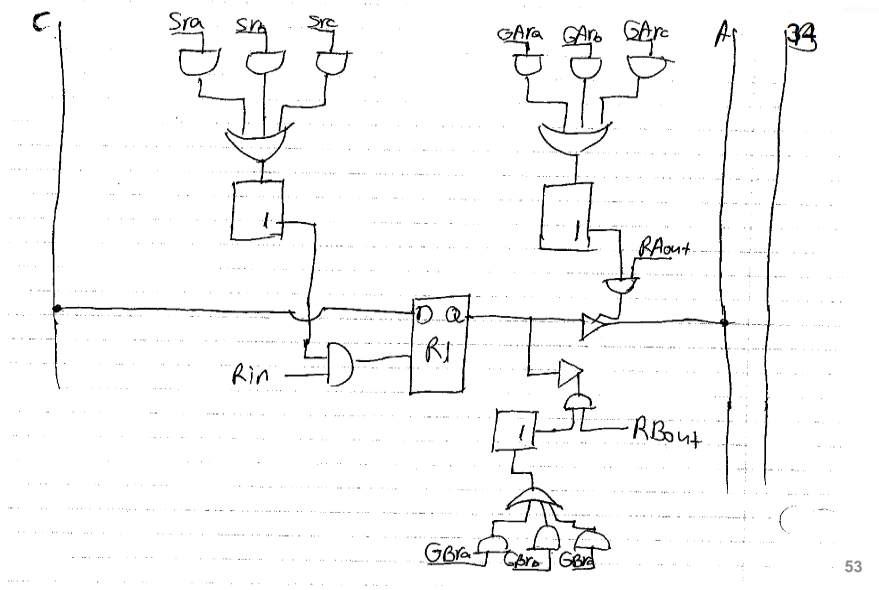 C Sra Srb Src GAra GArb GArc A
1 1
RAout
D Q
R1
Rin
1 RBout
GBra GBrb GBra
53